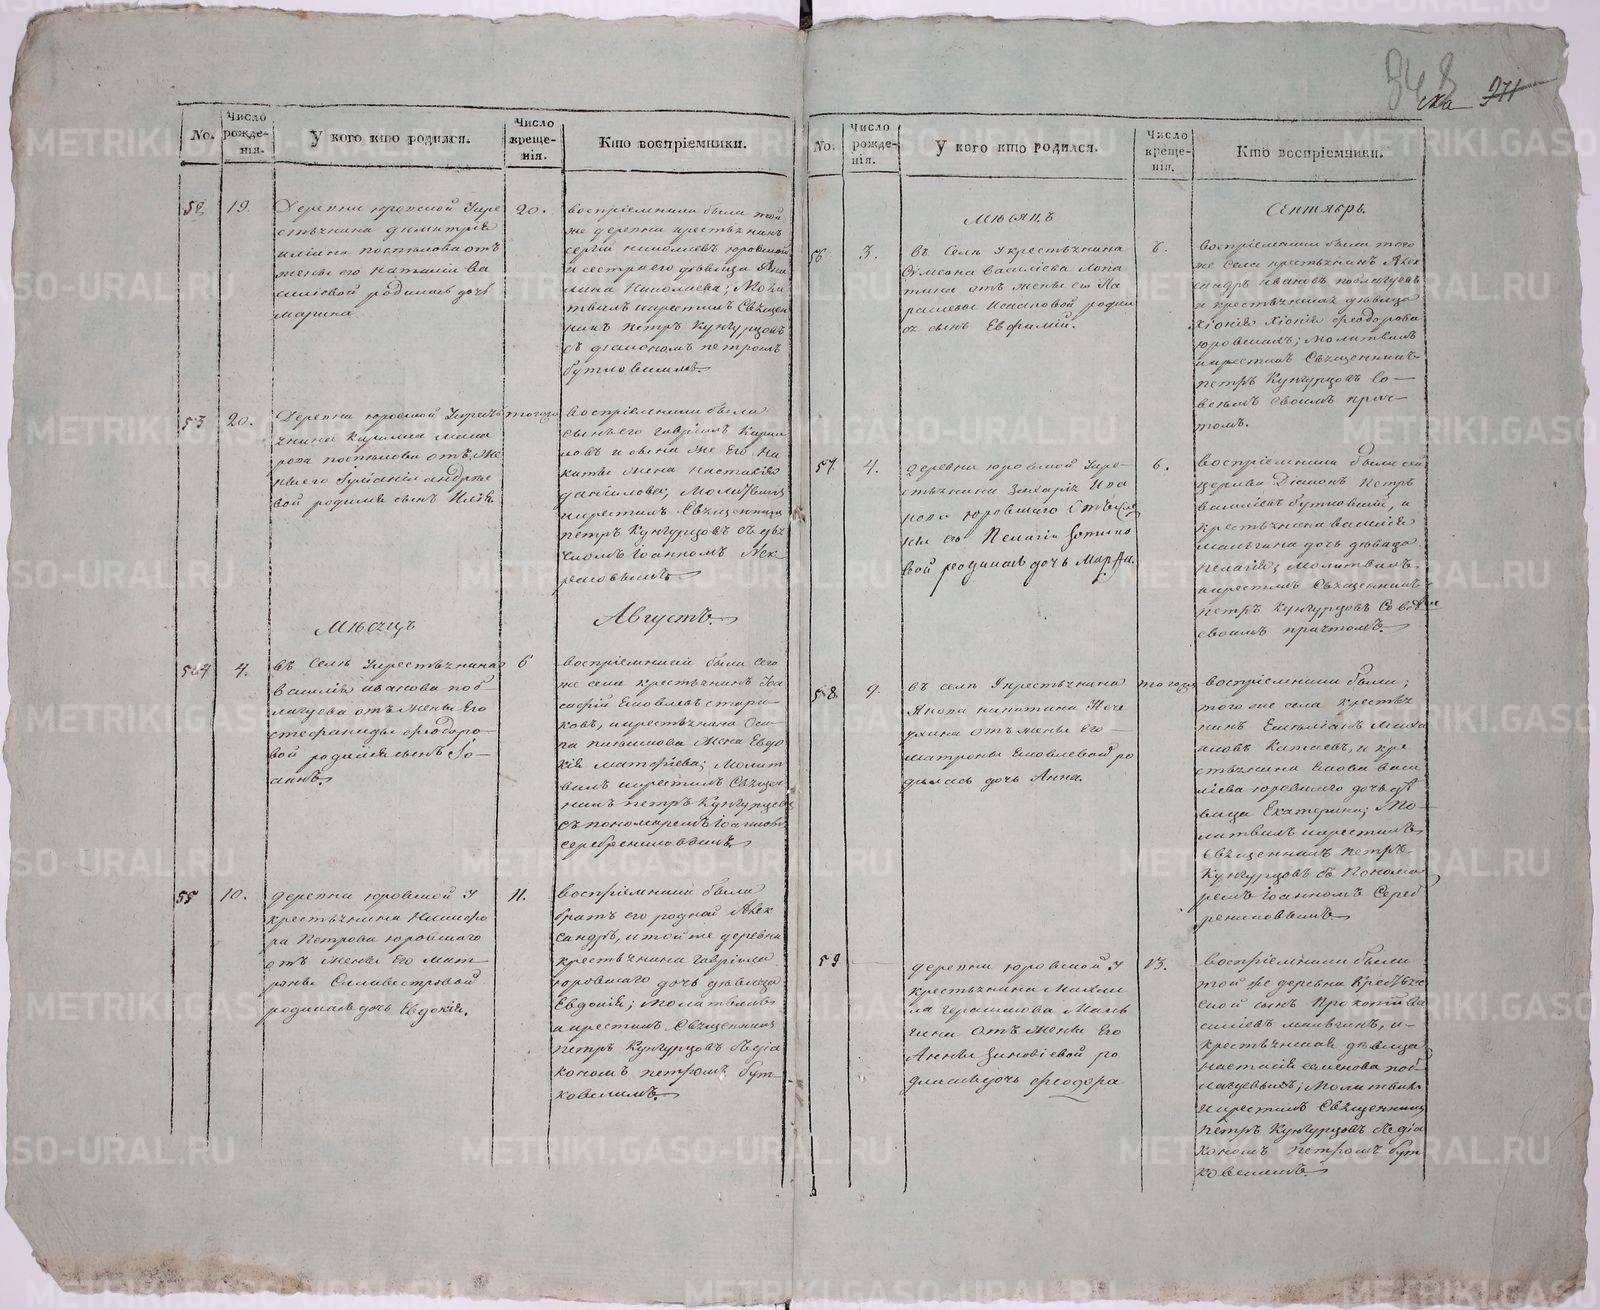 348
971
No.
Число рожде-
нія.
У кого кто родился.
Число креще-
нія.
Кто воспріемники.
52
19.
Деревни юровской Укре
стьянина димитрія
иліина поспѣлова отъ
жены его наталіи ва
силіевой родилась дочь
марина
20.
воспріемники были той
же деревни крестьянинъ
сергій николаевъ юровской
и сестра его дѣвица
лина Николаева; Моли
твилъ икрестилъ Священ
никъ петръ Кунгурцовъ
съ діакономъ петромъ
бутковскимъ.
53
20.
Деревни юровской Укресть
янина Карилла мака
рова поспѣлова отъ же
ны его андрее
вой родился сынъ Илія.
тогож
воспріемники были
сынъ его гавріилъ Карил
ловъ и сына же Его
киты жена настасія
даніилова, Молитвилъ
икрестилъ Священникъ
петръ Кунгурцовъ съ дья
чкомъ Іоанномъ Нек
расовымъ
Мѣсяцъ
Августъ.
54
4.
въ Селѣ Укрестьянина
василія иванова поб
лагуева отъ жены Его
стефаниды феодоро
вой родился сынъ Іо
аннъ.
6
воспріемники были сего
же села крестьянинъ
Ековлевъ стари
ковъ, икрестьянина Оси
па жена Евдо
кія матфіева; Молит
вилъ икрестилъ Священ
никъ петръ Кунгурцовъ
съ пономаремъ Іоанномъ
серебрениковымъ.
55
10.
деревни юровской У
крестьянина Никифо
ра Петрова юровскаго
отъ жены Его мат
роны Селивестровой
родилась дочь Евдокія.
11.
воспріемники были
братъ его родной Алек
сандръ, и той же деревни
крестьянина гавріила
юровскаго дочь дѣвица
Евдокія; Молитвилъ
икрестилъ Священникъ
петръ Кунгурцовъ съ діа
кономъ петромъ бут
ковскимъ.
No.
Число рожде-
нія.
У кого кто родился.
Число креще-
нія.
Кто воспріемники.
Мѣсяцъ
Сентябрь.
56
3.
въ Селѣ Укрестьянина
Сѵмеона василіева лопа
тина отъ жены его Па
раскевы родил
ся сынъ Евфимій.
6.
воспріемники были того
же Села крестьянинъ Алек
сандръ ивановъ поблагуевъ
и крестьянская дѣвица
хіонія феодорова
юровскихъ; молитвилъ
икрестилъ Священникъ
петръ Кунгурцовъ Со
всемъ своимъ прич
томъ.
57
4.
деревни юровской Укре-
стьянина Захаріи Ива
нова юровскаго отъ же
ны его Пелагіи
вой родилась дочь Марѳа.
6.
воспріемники были сей
церкви Діаконъ Петръ
василіевъ бутковскій, и
крестьянина василія
мальгина дочь дѣвица
пелагія; Молитвилъ
икрестилъ Священникъ
петръ Кунгурцовъ Совсѣм
своимъ причтомъ.
58
9.
въ селѣ Укрестьянина
Якова никитина Коче
ухина отъ жены Его
матроны Ековлевой ро
дилась дочь Анна.
тогож
воспріемники были;
того же села крестья
нинъ Емеліанъ Миха
иловъ Катаевъ, и кре
стьянина Екова васи
ліева юровскаго дочь дѣ
вица Екатерина; Мо
литвилъ икрестилъ
Священникъ петръ
Кунгурцовъ съ Понома
ремъ Іоанномъ Сереб
рениковымъ
59
деревни юровской У
крестьянина
ла герасимова Маль
гина отъ жены Его
Анны Зиновіевой ро
дилась дочь феодора
13.
воспріемники были
той же деревни Крестьян
ской сынъ Прокопій ва
силіевъ мальгинъ, и
крестьянская дѣвица
настасія семенова поб
лагуевыхъ; Молитвилъ
икрестилъ Священникъ
петръ Кунгурцовъ съ діа
кономъ петромъ бут
ковскимъ
METRIKI.GASO-URAL.RU